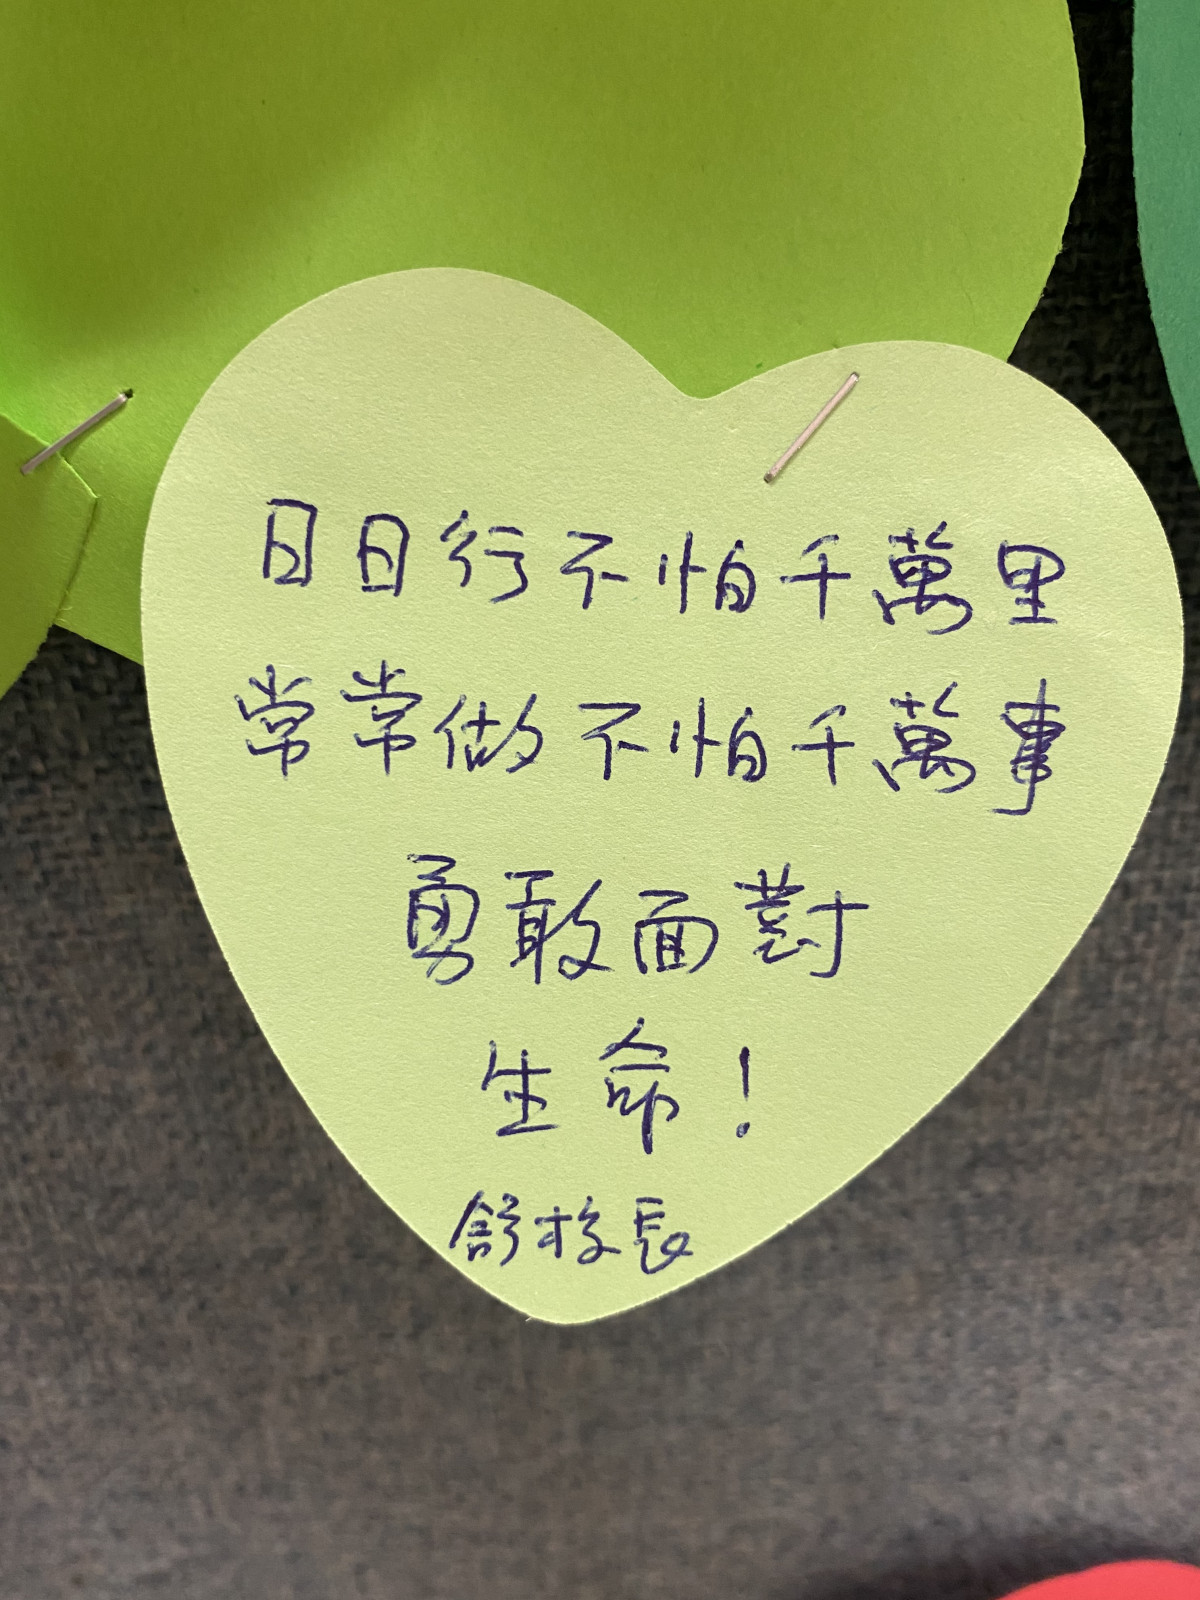 日日行不怕千萬里
常常做不怕千萬事
勇敢面對
生命！
舒校長